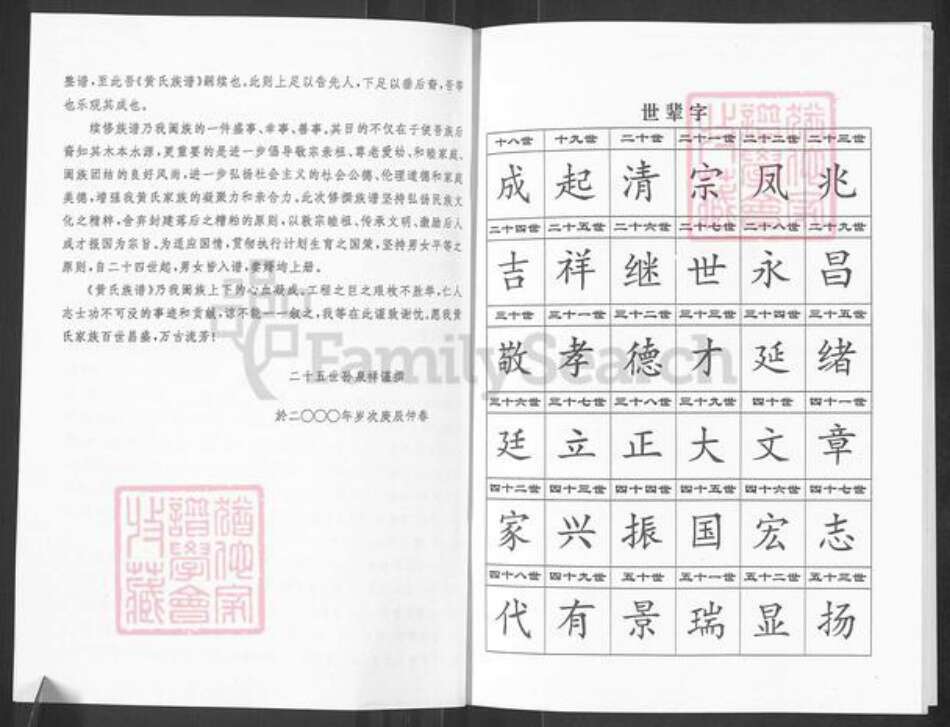 整谱,至此吾《黄氏族谱》嗣续也。此则上足以告先人,下足以垂后裔,吾等
也乐观其成也。
续修族谱乃我阖族的一件盛事、幸事、善事。其目的不仅在于使吾族后
裔知其木本水源,更重要的是进一步倡导敬宗亲祖、尊老爱幼、和睦家庭、
阖族团结的良好风尚,进一步弘扬社会主义的社会公德、伦理道德和家庭
美德,增强我黄氏家族的凝聚力和亲合力。此次修撰族谱坚持弘扬民族文
化之精粹,舍弃封建落后之糟粕的原则,以敦宗睦祖、传承文明、激励后人
成才报国为宗旨。为适应国情,贯彻执行计划生育之国策,坚持男女平等之
原则,自二十四世起,男女皆入谱,妻婿均上册。
《黄氏族谱》乃我阖族上下的心血凝成。工程之巨之艰枚不胜举,仁人
志士功不可没的事迹和贡献,谅不能一一叙之,我等在此谨致谢忱。愿我黄
氏家族百世昌盛,万古流芳!
二十五世孙泉祥谨撰
於二〇〇〇年岁次庚辰仲春
世辈字
十八世 十九世 二十世 二十一世 二十二世 二十三世
成 起 清 宗 凤 兆
二十四世 二十五世 二十六世 二十七世 二十八世 二十九世
吉 祥 继 世 永 昌
三十世 三十一世 三十二世 三十三世 三十四世 三十五世
敬 孝 德 才 延 绪
三十六世 三十七世 三十八世 三十九世 四十世 四十一世
廷 立 正 大 文 章
四十二世 四十三世 四十四世 四十五世 四十六世 四十七世
家 兴 振 国 宏 志
四十八世 四十九世 五十世 五十一世 五十二世 五十三世
代 有 景 瑞 显 扬
FamilySearch